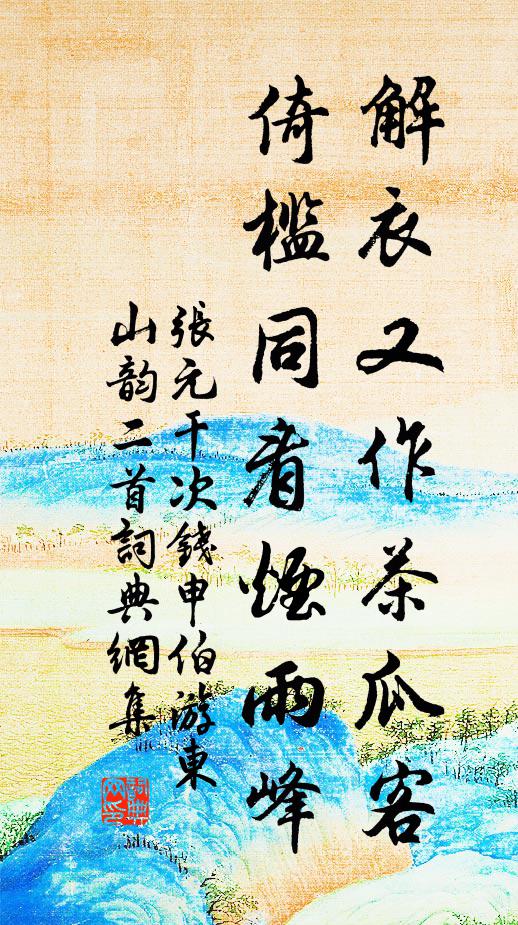 解衣又作茶瓜客
倚檻同看煙雨峰
張元干次錢申伯游東
山韵二首詞典網集